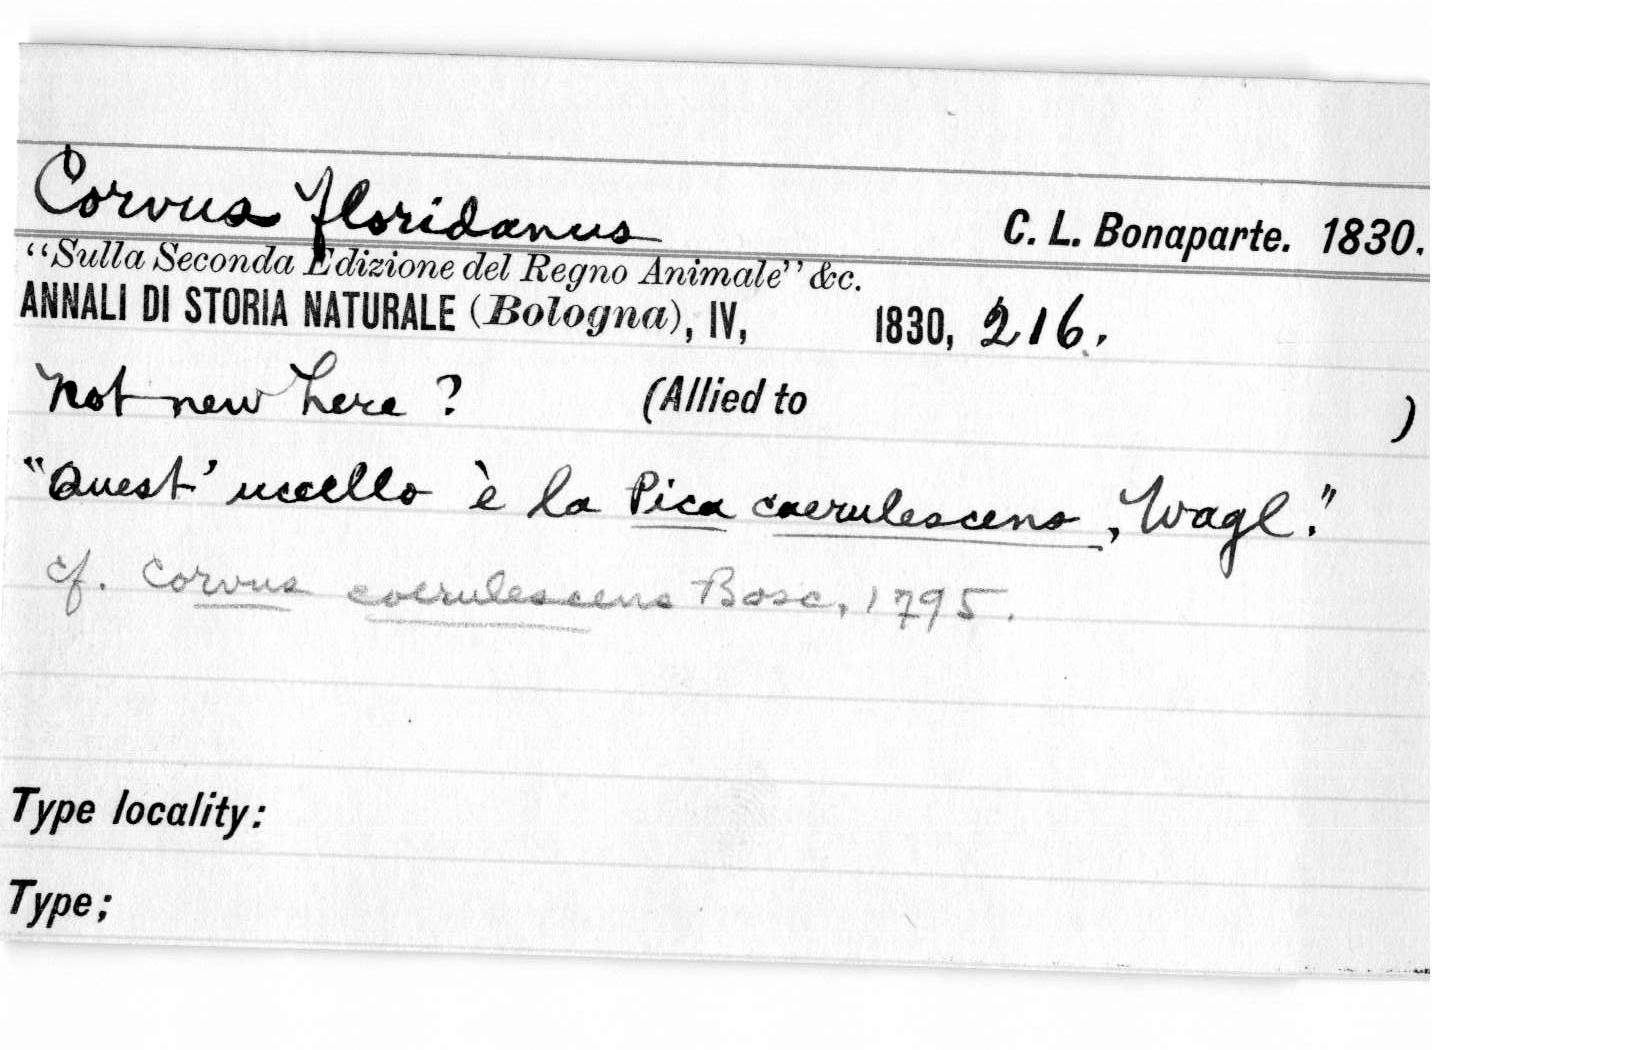 Corvus floridanus C. L. Bonaparte. 1830.
“Sulla Seconda Edizione del Regno Animale” &c.
ANNALI DI STORIA NATURALE (Bologna), IV, 1830, 216.
Not new here? (Allied to )
“Quest’ uccello è la Pica caerulescens, Wagl.”
cf. Corvus coerulescens Bosc, 1795.
Type locality:
Type;